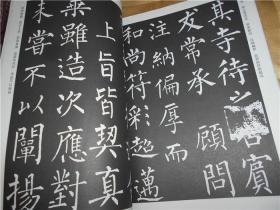 其寺待之若賓
友常承顧問
注納偏厚而
和尚符彩超邁
上旨皆契真
乘雖造次應對
未嘗不以闡揚